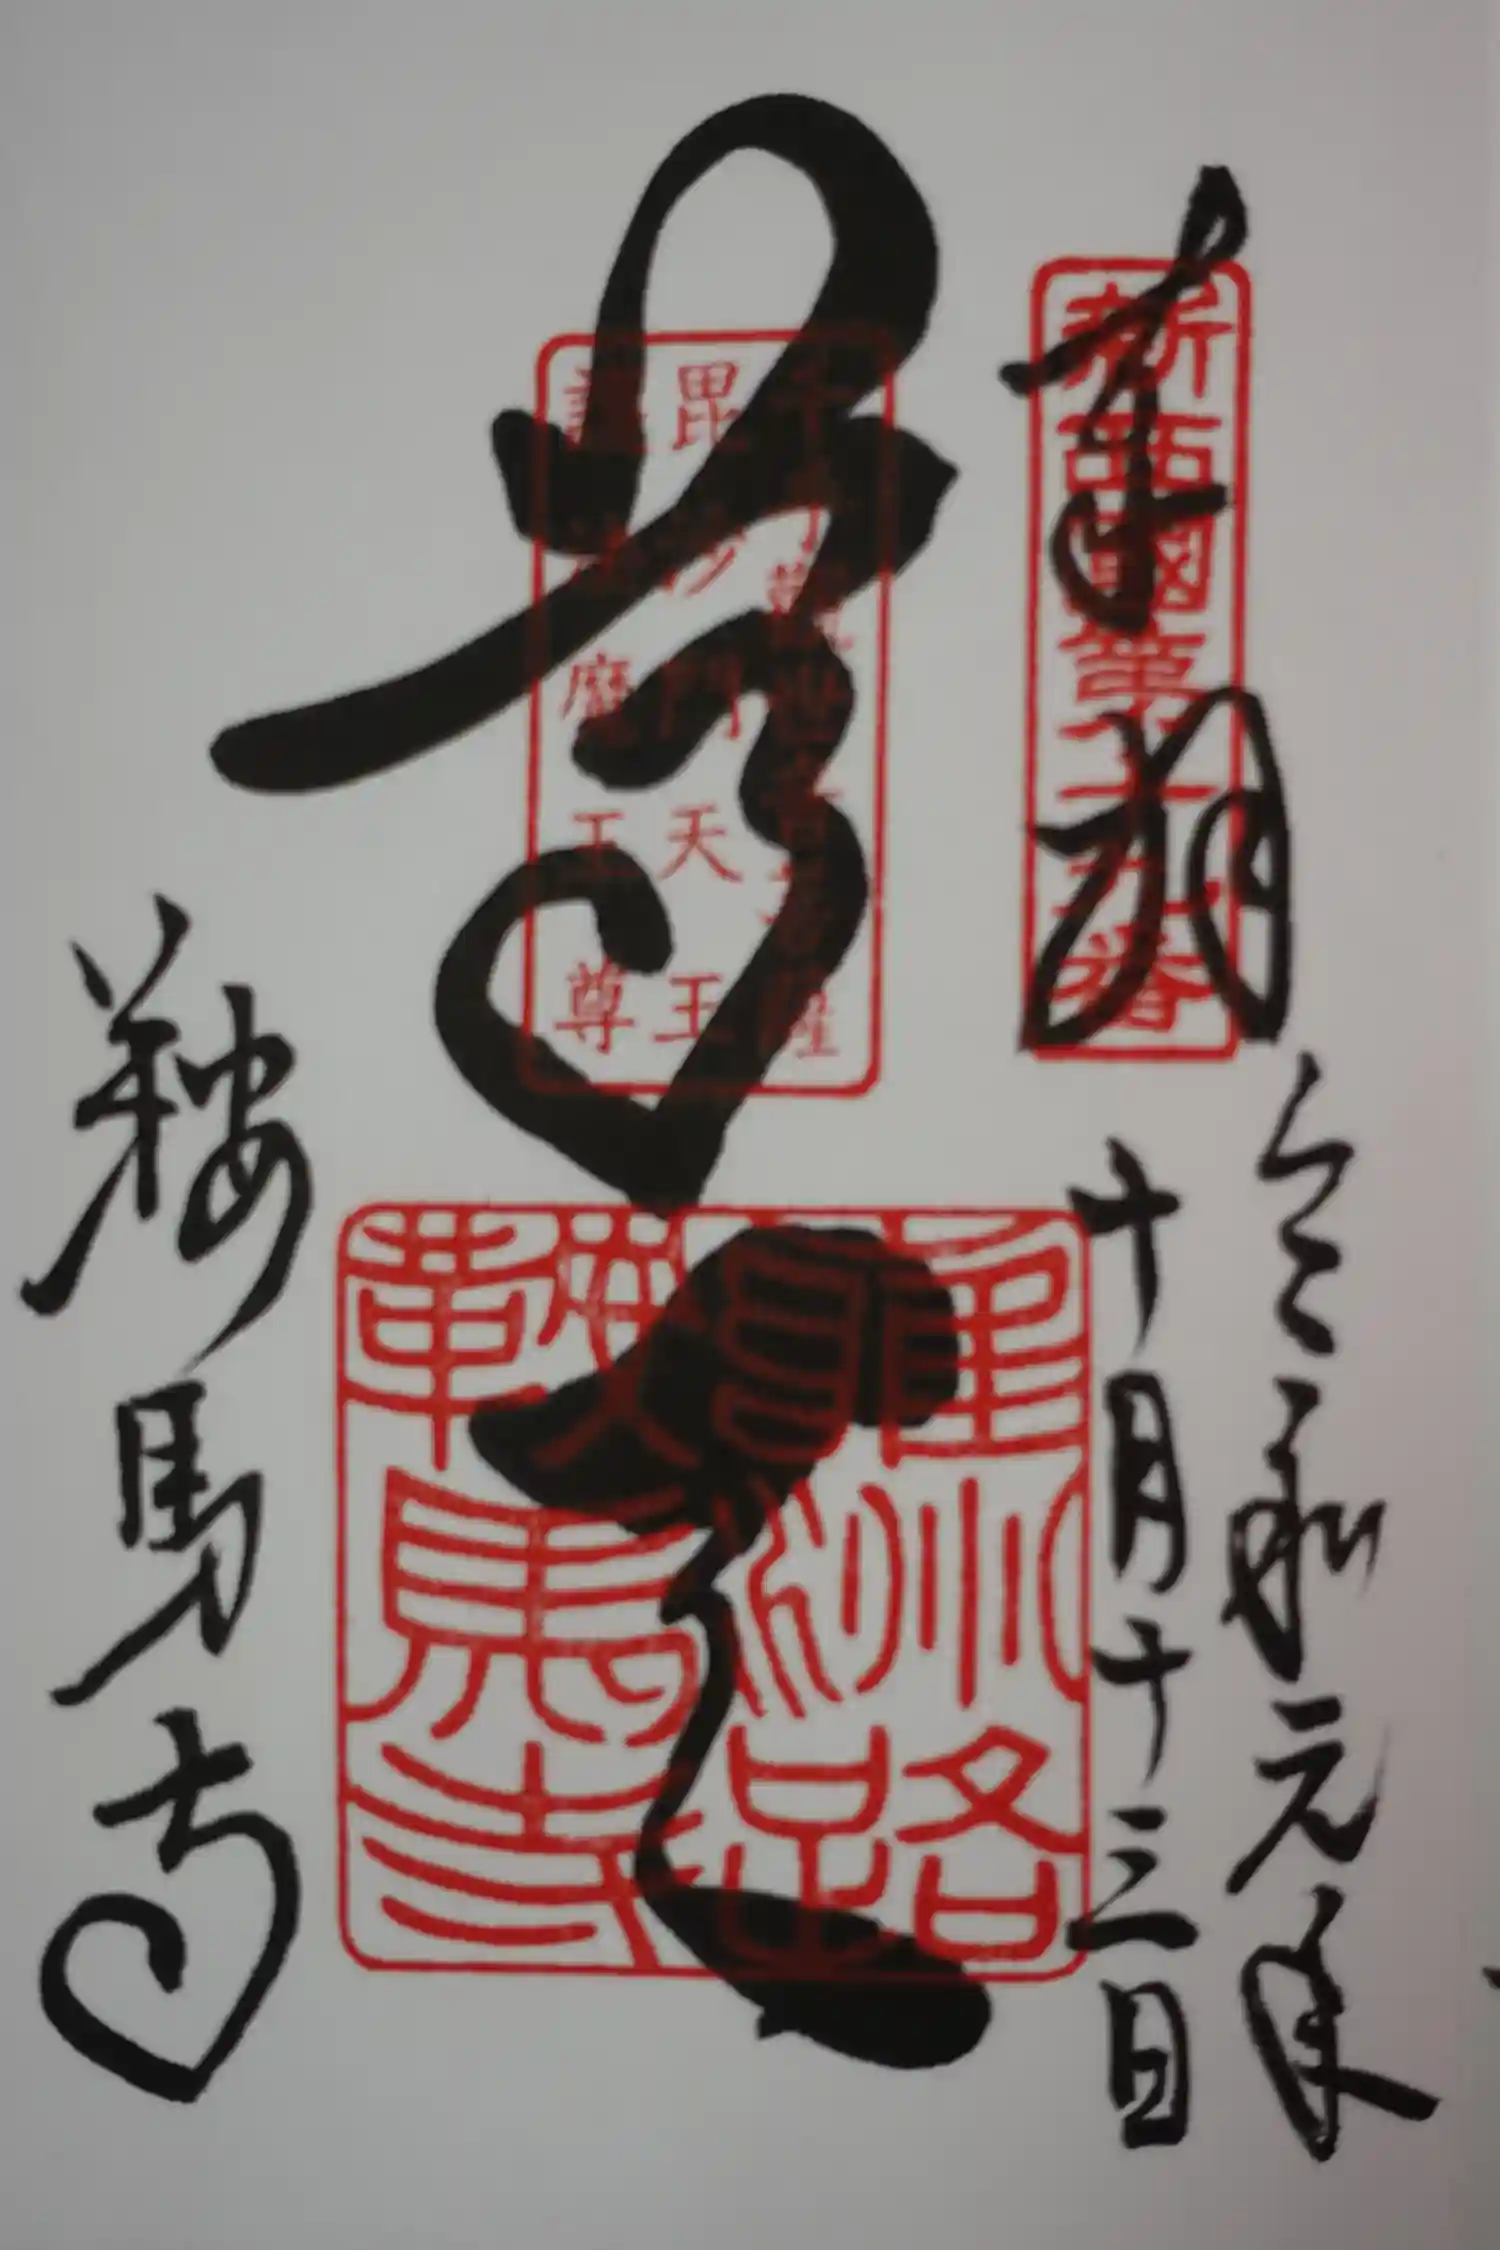 奉拝
新西國第十九番
令和元年
十月十三日
尊天
千手觀世音菩薩
毘沙門天王
護法魔王尊
雍州路
鞍馬寺
鞍馬寺